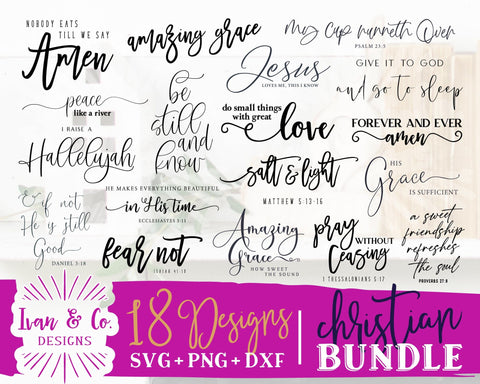 NOBODY EATS
TILL WE SAY
Amen
amazing grace
My Cup runneth Over
PSALM 23:5
Jesus
LOVES ME, THIS I KNOW
GIVE IT TO GOD
and go to sleep
peace
like a river
be
still
and
know
do small things
with great
love
FOREVER AND EVER
amen
I RAISE A
Hallelujah
salt & light
MATTHEW 5:13-16
HIS
Grace
IS SUFFICIENT
HE MAKES EVERYTHING BEAUTIFUL
in His time
ECCLESIASTES 3:11
& if not
He is still
Good
DANIEL 3:18
fear not
ISAIAH 41:10
Amazing
Grace
HOW SWEET
THE SOUND
pray
WITHOUT
ceasing
1 THESSALONIANS 5:17
a sweet
friendship
refreshes
the soul
PROVERBS 27:9
Ivan & Co.
DESIGNS
18 Designs
SVG + PNG + DXF
christian
BUNDLE